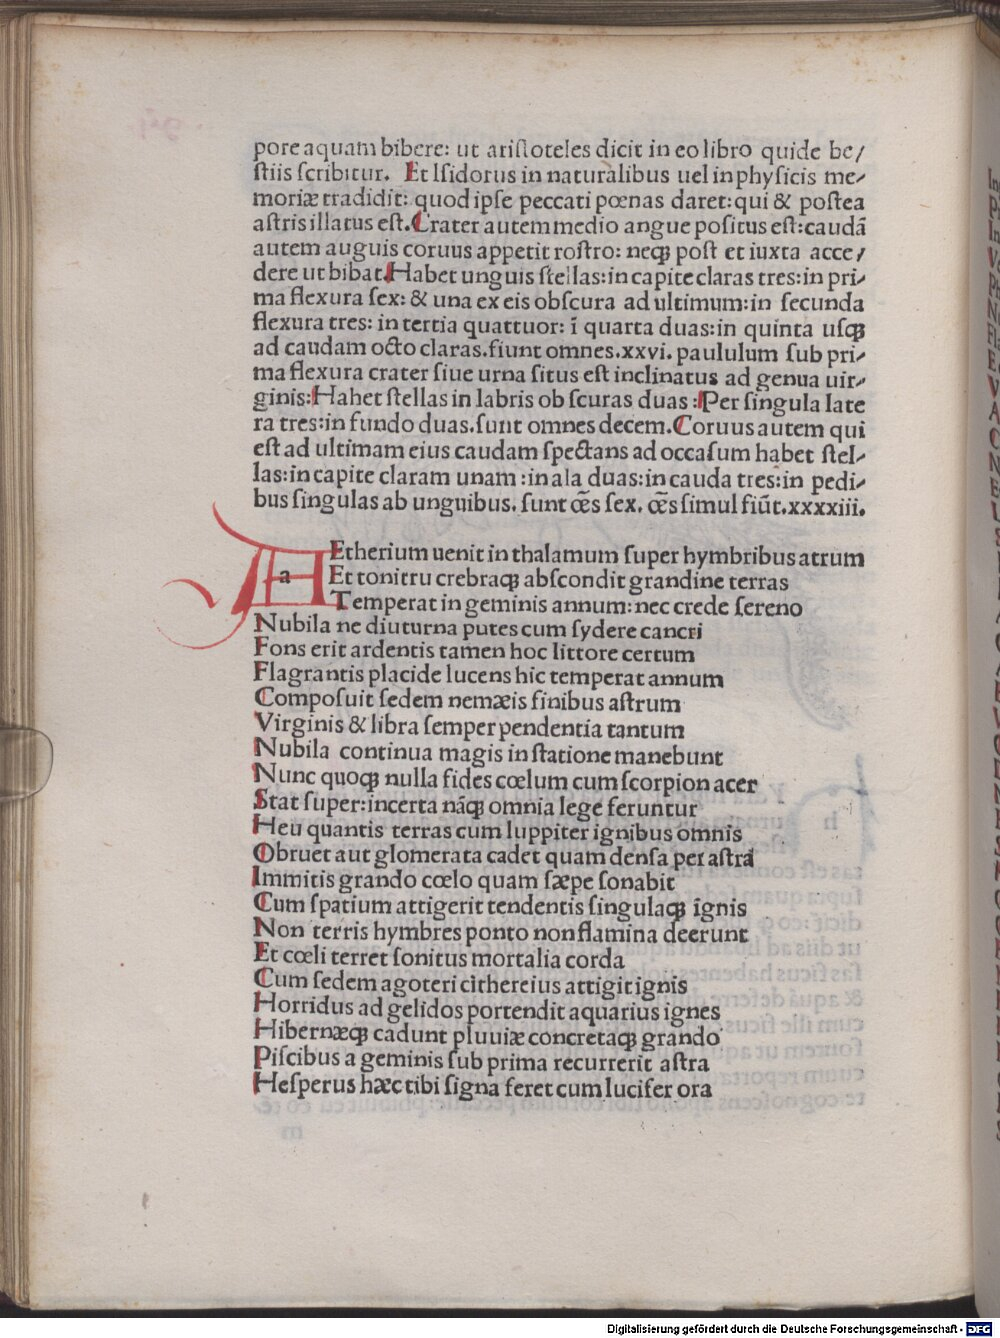 pore aquam bibere: ut aristoteles dicit in eo libro quide be/
stiis scribitur. Et Isidorus in naturalibus uel in physicis me/
moriæ tradidit: quod ipse peccati pœnas daret: qui & postea
astris illatus est. Crater autem medio angue positus est: caudã
autem auguis coruus appetit rostro: neqꝫ post et iuxta acce/
dere ut bibat. Habet unguis stellas: in capite claras tres: in pri/
ma flexura sex: & una ex eis obscura ad ultimum: in secunda
flexura tres: in tertia quattuor: ĩ quarta duas: in quinta usqꝫ
ad caudam octo claras. fiunt omnes .xxvi. paululum sub pri/
ma flexura crater siue urna situs est inclinatus ad genua uir/
ginis: Habet stellas in labris obscuras duas: Per singula late
ra tres: in fundo duas. sunt omnes decem. Coruus autem qui
est ad ultimam eius caudam spectans ad occasum habet stel/
las: in capite claram unam: in ala duas: in cauda tres: in pedi/
bus singulas ab unguibus. sunt oẽs sex. oẽs simul fiũt .xxxxiii.
a
AEtherium uenit in thalamum super hymbribus atrum
Et tonitru crebraqꝫ abscondit grandine terras
Temperat in geminis annum: nec crede sereno
Nubila ne diuturna putes cum sydere cancri
Fons erit ardentis tamen hoc littore certum
Flagrantis placide lucens hic temperat annum
Composuit sedem nemæis finibus astrum
Virginis & libra semper pendentia tantum
Nubila continua magis in statione manebunt
Nunc quoqꝫ nulla fides cœlum cum scorpion acer
Stat super: incerta nãqꝫ omnia lege feruntur
Heu quantis terras cum Iuppiter ignibus omnis
Obruet aut glomerata cadet quam densa per astra
Immitis grando cœlo quam sæpe sonabit
Cum spatium attigerit tendentis singulaqꝫ ĩgnis
Non terris hymbres ponto non flamina deerunt
Et cœli terret sonitus mortalia corda
Cum sedem agoteri cithereius attigit ignis
Horridus ad gelidos portendit aquarius ignes
Hibernæqꝫ cadunt pluuiæ concretaqꝫ grando
Piscibus a geminis sub prima recurrerit astra
Hesperus hæc tibi signa feret cum lucifer ora
Digitalisierung gefördert durch die Deutsche Forschungsgemeinschaft - DFG